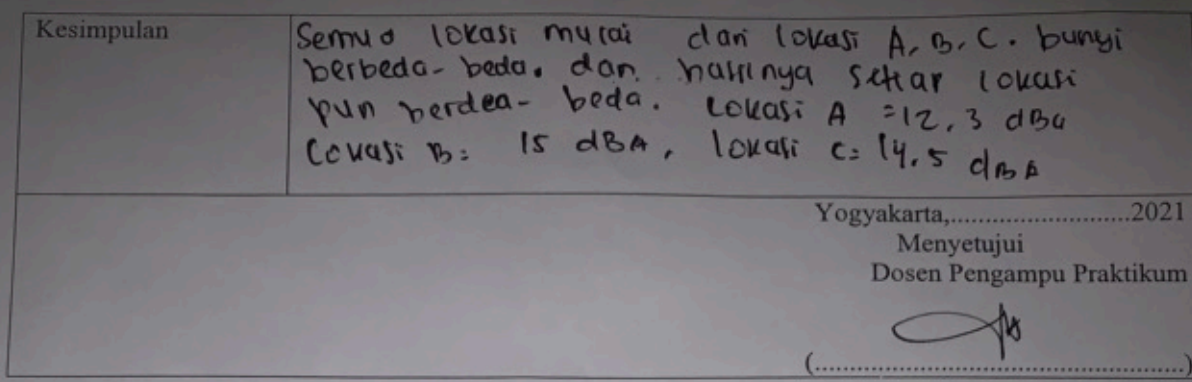 Kesimpulan
Semua lokasi mulai dari lokasi A, B, C. bunyi
berbeda-beda. dan hasilnya setiap lokasi
pun berdea-beda. Lokasi A = 12,3 dBA
Lokasi B = 15 dBA, lokasi C = 14.5 dBA
Yogyakarta,...........................2021
Menyetujui
Dosen Pengampu Praktikum
(......................................................)